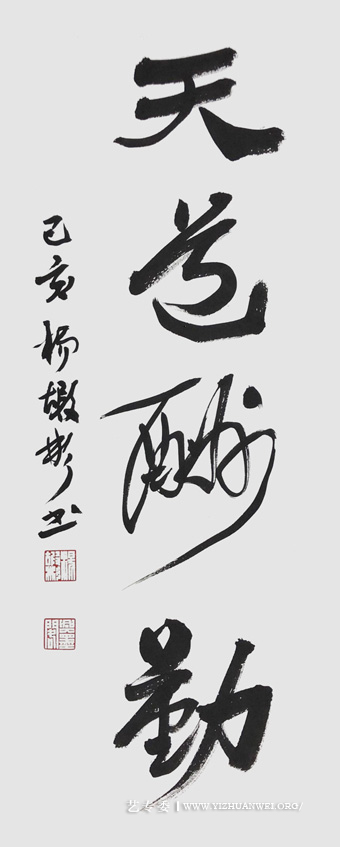 天道酬勤
己亥 杨墩彬书
艺专委 WWW.YIZHUANWEI.ORG/